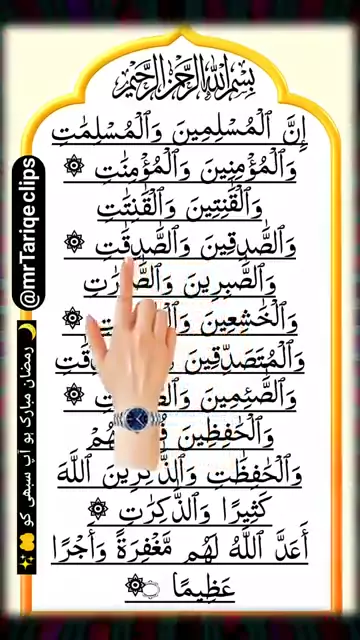 بِسْمِ اللّٰهِ الرَّحْمٰنِ الرَّحِيْمِ
إِنَّ ٱلْمُسْلِمِينَ وَٱلْمُسْلِمَٰتِ
وَٱلْمُؤْمِنِينَ وَٱلْمُؤْمِنَٰتِ ۞
وَٱلْقَٰنِتِينَ وَٱلْقَٰنِتَٰتِ
وَٱلصَّٰدِقِينَ وَٱلصَّٰدِقَٰتِ ۞
وَٱلصَّٰبِرِينَ وَٱلصَّٰبِرَٰتِ
وَٱلْخَٰشِعِينَ ۞
وَٱلْمُتَصَدِّقِينَ
وَٱلصَّٰٓئِمِينَ ۞
وَٱلْحَٰفِظِينَ
وَٱلْحَٰفِظَٰتِ وَٱلذَّٰكِرِينَ ٱللَّهَ
كَثِيرًا وَٱلذَّٰكِرَٰتِ ۞
أَعَدَّ ٱللَّهُ لَهُم مَّغْفِرَةً وَأَجْرًا
عَظِيمًا ۝۞
@mrTariqeclips
🌙 رمضان مبارک ہو آپ سبھی کو 🤲✨